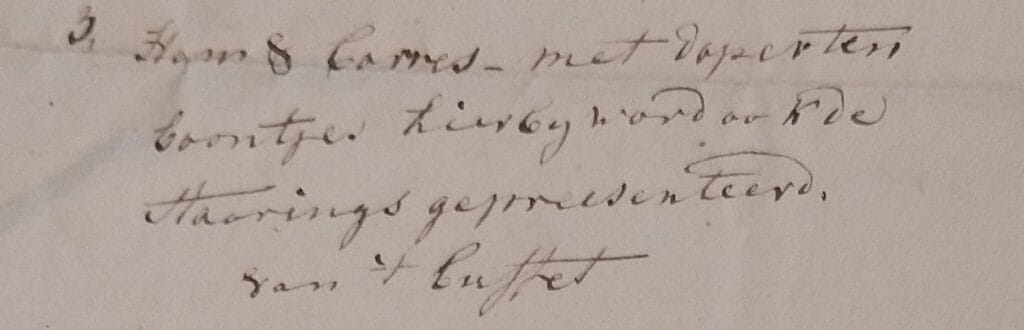 3. Ham & Carres - met doperten
boontjes hierby word ook de
Haarings gepreesenteerd.
van 't Buffet